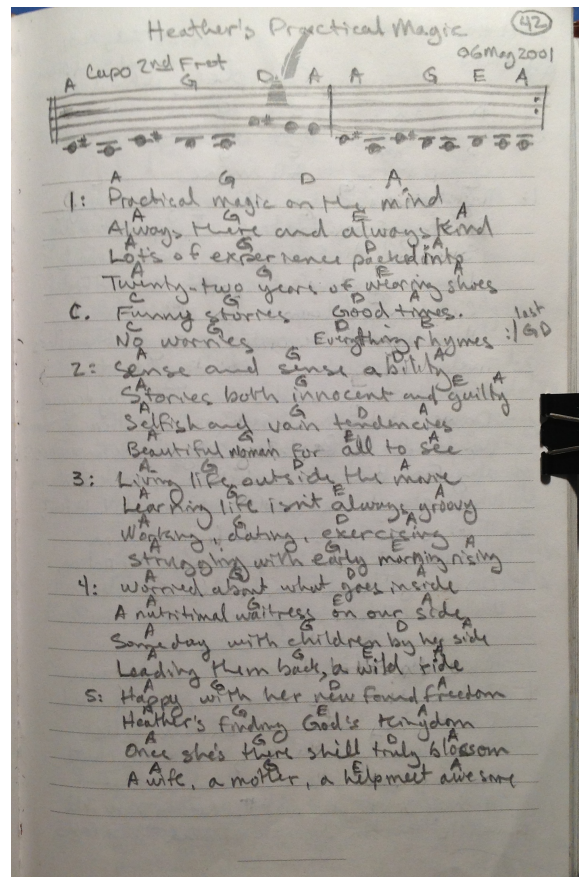 42
Heather's Practical Magic
06May2001
Capo 2nd Fret
A G D A A G E A
A G D A
1: Practical magic on the mind
A G E A
Always there and always kind
A G D A
Lots of experience packed into
A G E A
Twenty-two years of wearing shoes
C G D A
C. Funny stories Good times. last
C G D E
No worries Everything rhymes :/ GD
A G D A
2: Sense and sense ability
A G E A
Stories both innocent and guilty
A G D A
Selfish and vain tendencies
A G E A
Beautiful woman for all to see
A G D A
3: Living life outside the movie
A G E A
Learning life isn't always groovy
A G D A
Working, dating, exercising
A G E A
Struggling with early morning rising
A G D A
4: Worried about what goes inside
A G E A
A nutritional waitress on our side
A G D A
Someday with children by her side
A G E A
Leading them back, a wild ride
A G D A
5: Happy with her new found freedom
A G E A
Heather's finding God's Kingdom
A G D A
Once she's there shill truly blossom
A G E A
A wife, a mother, a helpmeet awesome